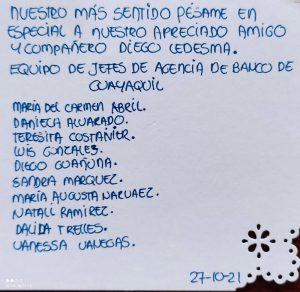 NUESTRO MÁS SENTIDO PÉSAME EN
ESPECIAL A NUESTRO APRECIADO AMIGO
Y COMPAÑERO DIEGO LEDESMA.
EQUIPO DE JEFES DE AGENCIA DE BANCO DE
GUAYAQUIL
MARÍA DEL CARMEN ABRIL.
DANIELA ALVARADO.
TERESITA COSTANIER.
LUIS GONZALES.
DIEGO GUAÑUNA.
SANDRA MARQUEZ.
MARÍA AUGUSTA NARVAEZ.
NATALI RAMIREZ.
DALIDA TRELLES.
VANESSA VANEGAS.
27-10-21